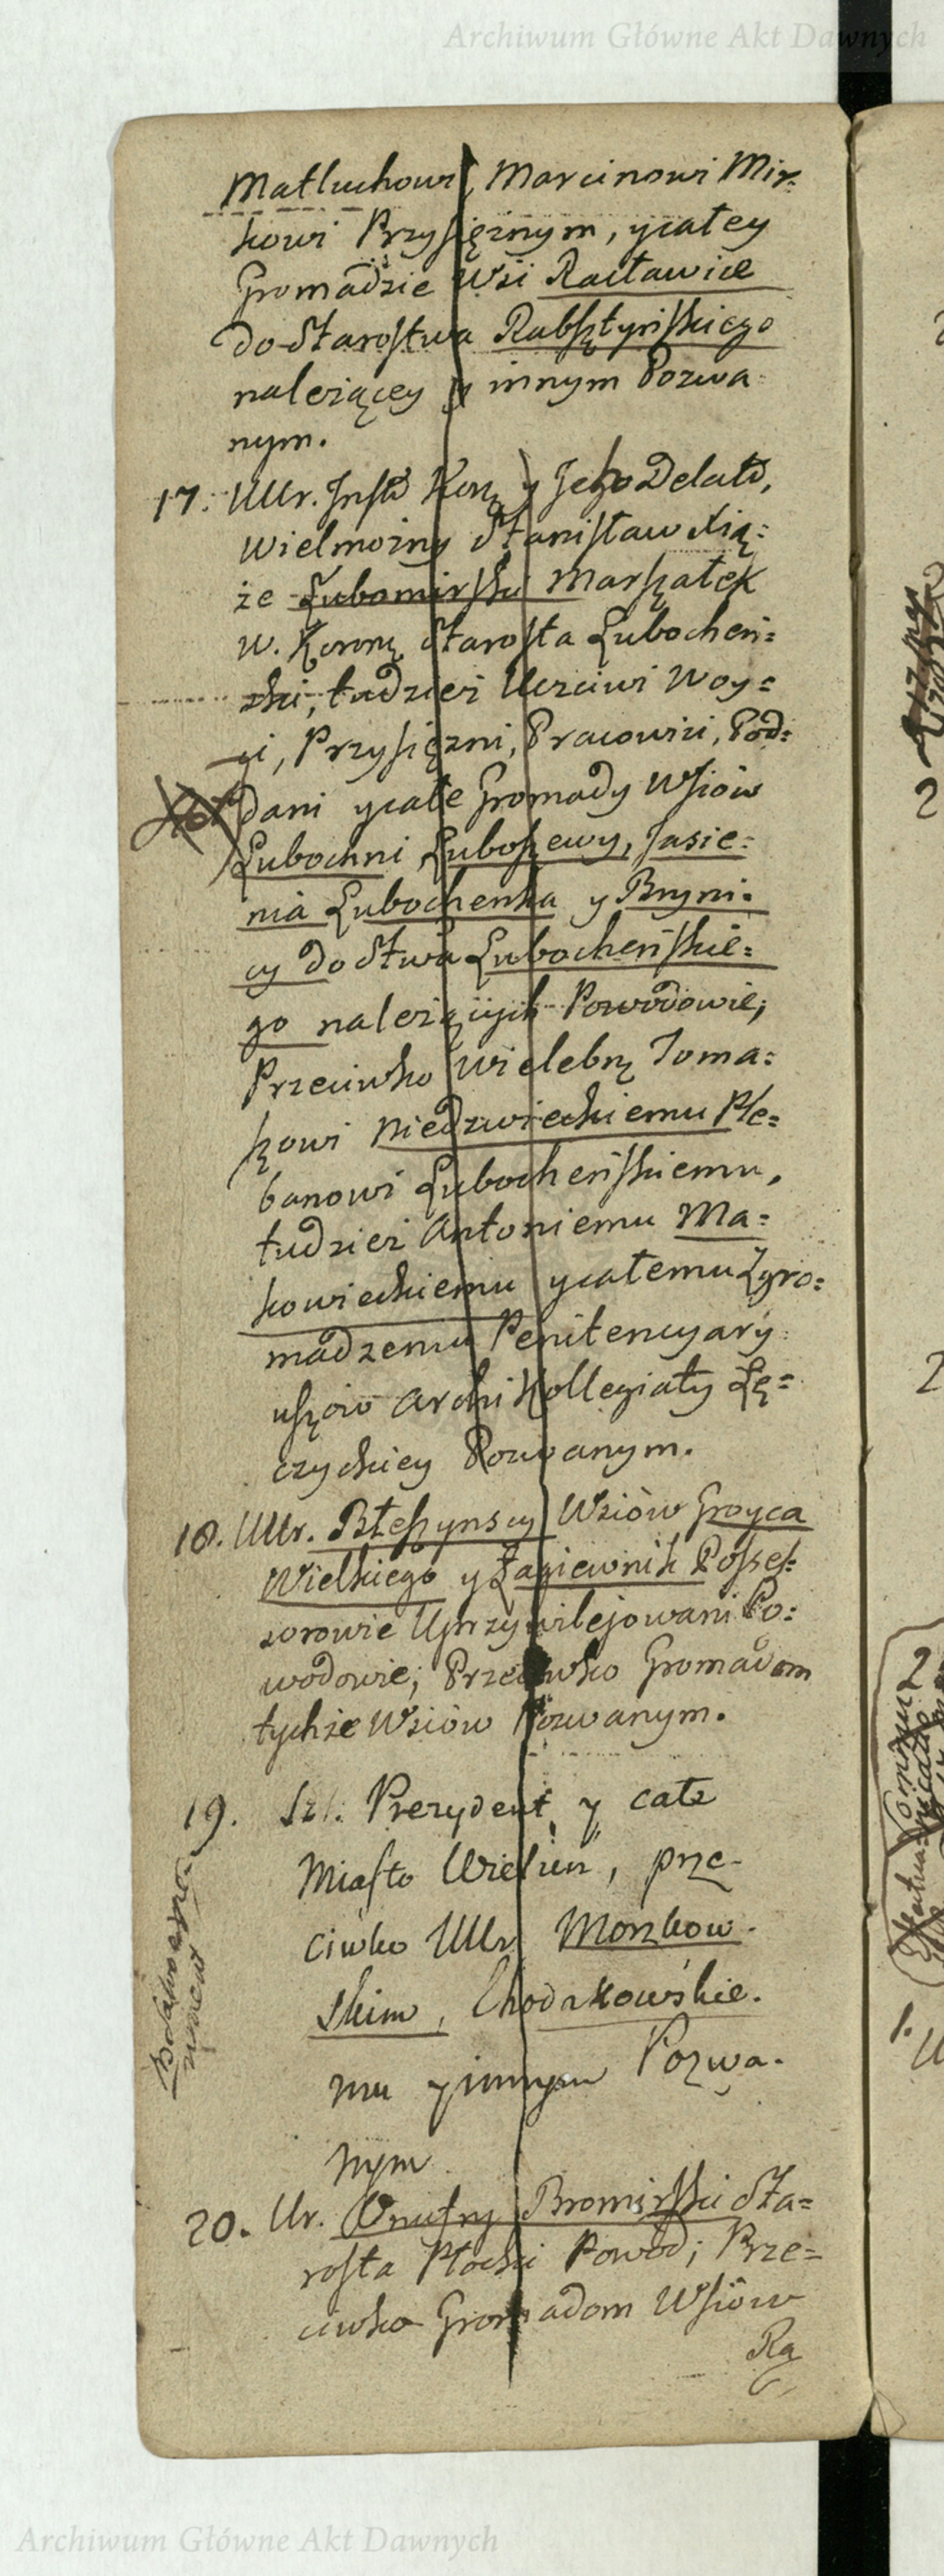 Archiwum Główne Akt Dawnych
Matluchowi, Marcinowi Mir-
kowi Przysięznym, y całey
Gromadzie Wsi Racławice
do Starostwa Rabsztyńskiego
nalezącey y innym Pozwa-
nym.
17. UUr. Inst Kor y Jeho Delatt,
Wielmożny Stanisław Xią:
że Lubomirski Marszałek
W. Koronny Starosta Lubocheń:
ski, tudzież Uczciwi Woy:
ci, Przysięzni, Pracowici, Pod:
dani y całe Gromady Wsiow
Lubochni Luboszewy, Jasie:
nia Lubochenka y Bryni:
cy do Stwa Lubocheńskie:
go nalezących Powodowie;
Przeciwko Wielebn. Toma:
szowi Niedzwieckiemu Ple:
banowi Lubocheńskiemu,
tudzież Antoniemu Ma:
kowieckiemu y całemu Zgro:
madzeniu Penitencyary
uszów Archi Kollegiaty Łę:
czyckiey Pozwanym.
18. UUr. Błeszynscy Wsiów Groyca
Wielkiego y Łagiewnik Posses:
sorowie Uprzywilejowani Po:
wodowie; Przeciwko Gromadom
tychże Wsiów Pozwanym.
19. Szl. Prezydent y całe
Miasto Wieluń, prze-
ciwko UUr Morzkow-
skim, Chodakowskie-
mu y innym Pozwa-
nym
20. Ur. Onufry Bromirski Sta=
rosta Płocki Powod; Prze=
ciwko Gromadom Wsiów
Ra
Archiwum Główne Akt Dawnych